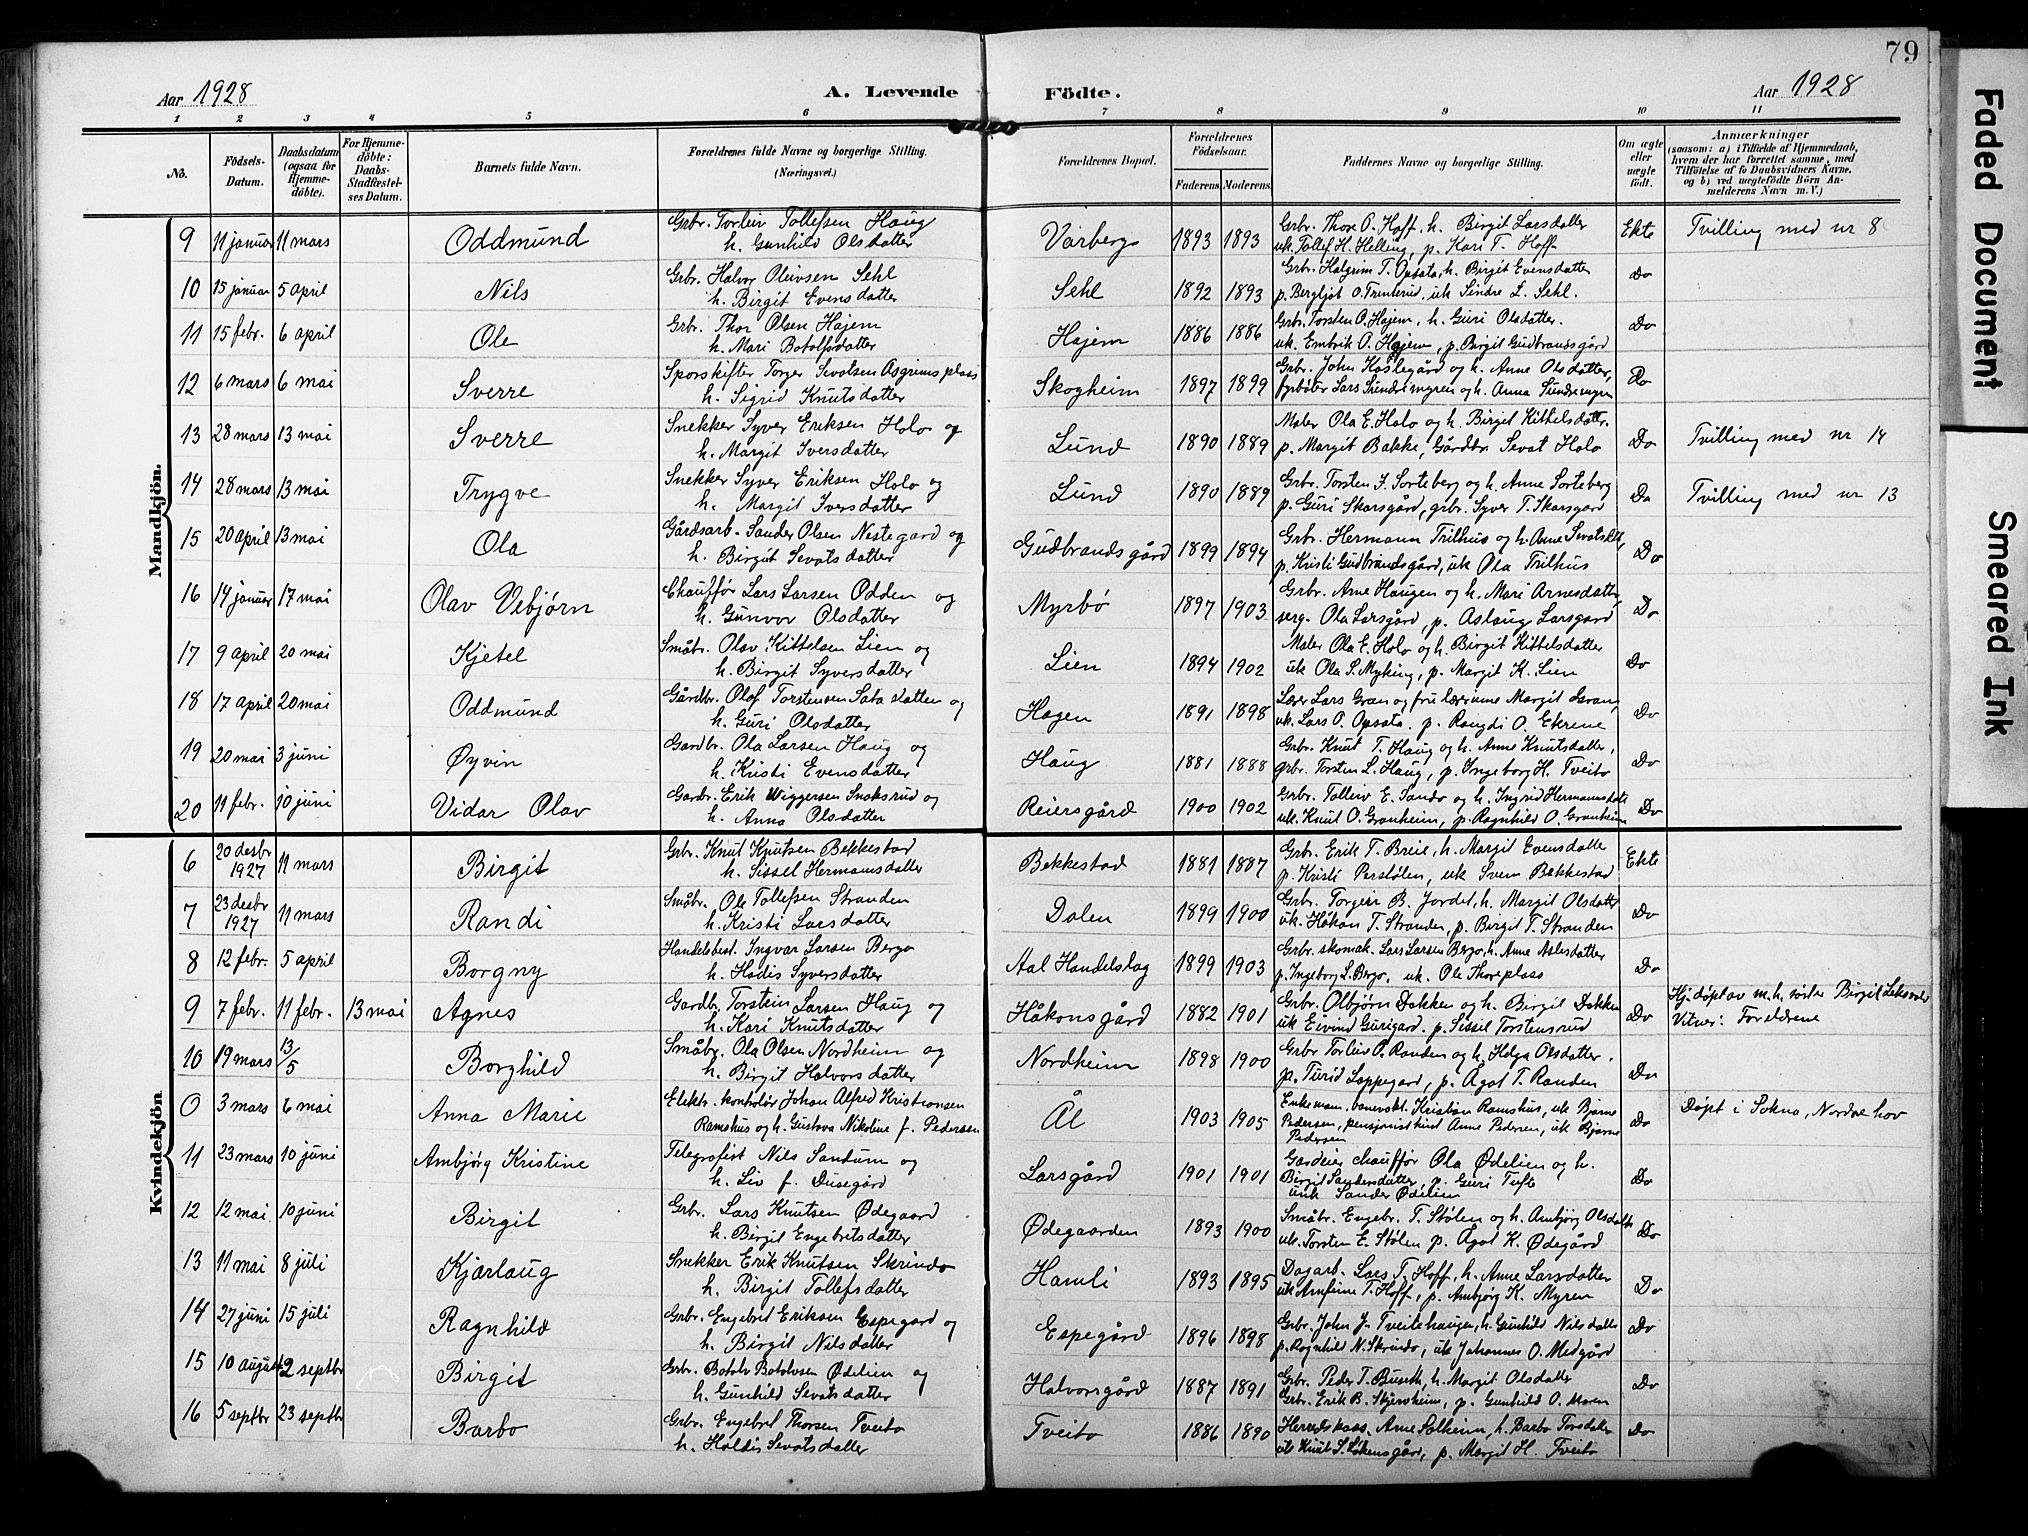 79
Aar 1928
A. Levende
Födte.
Aar 1928
1 2 3 4 5 6 7 8 9 10 11
No.
Födsels-Datum.
Daabsdatum (ogsaa for Hjemme-döbte).
For Hjemme-döbte: Daabs-Stadfæstel-ses Datum.
Barnets fulde Navn.
Forældrenes fulde Navne og borgerlige Stilling. (Næringsvei.)
Forældrenes Bopæl.
Forældrenes Födselsaar.
Faderens. Moderens.
Faddernes Navne og borgerlige Stilling.
Om ægte eller uægte födt.
Anmærkninger
(saasom: a) i Tilfælde af Hjemmedaab, hvem der har forrettet samme, med Tilföielse af to Daabsvidners Navne, og b) ved uægtefödte Börn Anmelderens Navn m. V.)
Mandkjön.
9 11 januar 11 mars Oddmund Grbr. Torleiv Tollefsen Haug h. Gunhild Olsdatter Vårberg 1893 1893 Grbr. Thore O. Hoff, h. Birgit Larsdatter uk. Tollef H. Helling, p. Kari T. Hoff Ekte Tvilling med nr 8
10 15 januar 5 april Nils Grbr. Halvor Oleivsen Sehl h. Birgit Evensdatter Sehl 1892 1893 Grbr. Halgrim T. Opsata, h. Birgit Evensdatter p. Bergljot O. Trinterud, uk Sindre L. Sehl. Do
11 15 febr. 6 april Ole Grbr. Thor Olsen Hajem h. Mari Botolfsdatter Hajem 1886 1886 Grbr. Torsten O. Hajem, h. Guri Olsdatter. uk. Embrik O. Hajem, p. Birgit Gudbrandsgård Do
12 6 mars 6 mai Sverre Sporskifter Torger Sevatsen Asgrimsplass h. Sigrid Knutsdatter Skogheim 1897 1899 Grbr. John Haslegård og h. Anne Olsdatter, fyrbøter Lars Sundremyren og h. Anna Sundremyren Do
13 28 mars 13 mai Sverre Snekker Syver Eriksen Holo og h. Margit Iversdatter Lund 1890 1889 Maler Ola E. Holo og h. Birgit Kittelsdatter. p. Margit Bakke, Gårdbr. Sevat Holo Do Tvilling med nr 14
14 28 mars 13 mai Trygve Snekker Syver Eriksen Holo og h. Margit Iversdatter Lund 1890 1889 Grbr. Torsten S. Sorteberg og h. Anne Sorteberg p. Guri Skarsgård, grbr. Syver T. Skarsgard Do Tvilling med nr 13
15 20 april 13 mai Ola Gårdsarb. Sander Olsen Nestegard og h. Birgit Sevatsdatter Gudbrandsgård 1899 1894 Grbr. Hermann Trilhus og h. Anne Sevatsdtr, p. Kristi Gudbrandsgård, uk Ola Trilhus Do
16 14 januar 17 mai Olav Vebjørn Chauffør Lars Larsen Odden og h. Gunvor Olsdatter Myrbø 1897 1903 Grbr. Arne Haugen og h. Mari Arnesdatter, serg. Ola Larsgård, p. Aslaug Larsgard Do
17 9 april 20 mai Kjetel Småbr. Olav Kittelsen Lien og h. Birgit Syversdatter Lien 1894 1902 Maler Ola E. Holo og h. Birgit Kittelsdatter uk Ola S. Myking, p. Margit K. Lien Do
18 17 april 20 mai Oddmund Gårdbr. Olaf Torstensen Sata Hatten og h. Guri Olsdatter Hagen 1891 1898 Lærer Lars Gran og fru lærerinne Margit Gran, uk. Lars O. Opsata. p. Rangdi O. Ekrene Do
19 20 mai 3 juni Øyvin Gardbr. Ola Larsen Haug og h. Kristi Evensdatter Haug 1881 1888 Grbr. Knut T. Haug og h. Anne Knutsdatter, grbr. Torsten L. Haug, p. Ingeborg H. Tveito Do
20 11 febr. 10 juni Vidar Olav Gardbr. Erik Wiggersen Snaksrud og h. Anna Olsdatter Reiersgård 1900 1902 Grbr. Tolleiv E. Sando og h. Ingrid Hermannsdatter uk. Knut O. Granheim, p. Ragnhild O. Granheim Do
Kvindekjön
6 20 desbr 1927 11 mars Birgit Grbr. Knut Knutsen Bekkestad h. Sissel Hermansdatter Bekkestad 1881 1887 Grbr. Erik T. Breie, h. Margit Evensdatter p. Kristi Perstølen, uk Sven Bekkestad Ekte
7 23 desbr 1927 11 mars Randi Småbr. Ole Tollefsen Stranden h. Kristi Larsdatter Dalen 1899 1900 Grbr. Torgeir B. Jordet, h. Margit Olsdatter uk. Håkon T. Stranden, p. Birgit T. Stranden Do
8 12 febr. 5 april Borgny Handelsbest. Ingvar Larsen Bergo h. Hadis Syversdatter Aal Handelslag 1899 1903 Grbr. skomak. Lars Larsen Bergo, h. Anne Aslesdatter p. Ingeborg L. Bergo, uk. Ole Thoreplass Do
9 7 febr. 11 febr. 13 mai Agnes Gardbr. Torstein Larsen Haug og h. Kari Knutsdatter Håkonsgård 1882 1901 Grbr. Olbjørn Dokken og h. Birgit Dokken uk Eivind Gurigard. p. Sissil Torstensrud Do Hj. døpt av m. h. søster Birgit Leksvol Vitner: Foreldrene
10 19 mars 13/5 Borghild Småbr. Ola Olsen Nordheim og h. Birgit Halvorsdatter Nordheim 1898 1900 Grbr Torleiv O. Randen og h. Helga Olsdatter. p. Turid Loppegard, p. Ågot T. Randen Do
0 3 mars 6 mai Anna Marie Elektr. kontrolør Johan Alfred Kristiansen Ramshus og h. Gustava Nikoline f. Pedersen Ål 1903 1905 Enkemann, banevokt. Kristian Ramshus, uk Bjarne Pedersen, pensjonist kud Anne Pedersen, uk Bjarne Pedersen Do Døpt i Sokna, Norderhov
11 23 mars 10 juni Ambjørg Kristine Telegrafist Nils Sandum og h. Liv f. Dusegård Larsgård 1901 1901 Gardeier chauffør Ola Ødelien og h. Birgit Sandersdatter, p. Guri Tufte unk Sander Ødelien Do
12 12 mai. 10 juni Birgit Grbr. Lars Knutsen Ødegaard h. Birgit Engebritsdatter Ødegaarden 1893 1900 Småbr. Engebr. T. Stølen og h. Ambjørg Olsdatter uk. Torsten E. Stølen p. Ågot K. Ødegård Do
13 11 mai 8 juli Kjærlaug Snekker Erik Knutsen Skrindo h. Birgit Tollefsdatter Hamli 1893 1895 Dagarb. Lars T. Hoff, h. Anne Larsdatter uk Arnfinn T. Hoff, p. Ambjørg K. Myren Do
14 27 juni 15 juli Ragnhild Grbr. Engebret Eriksen Espegard og h. Birgit Nilsdatter Espegård 1896 1898 Grbr. John J. Tveitehaugen, h. Gunhild Nilsdatter p. Ragnhild N. Skrindo, uk Johannes O. Medgård Do
15 10 august 2 septbr Birgit Grbr. Botolv Botolvsen Ødelien og h. Gunhild Sevatsdatter Halvorsgård 1887 1891 Grbr. Peder T. Buseth, h. Margit Olsdatter Grbr. Erik B. Skjersheim, p. Gunhild O. Moren Do
16 5 septbr 23 septbr Barbo Grbr. Engebret Thorsen Tveito h. Haldis Sevatsdatter Tveito 1886 1890 Herredskass. Arne Solheim, h. Barbo Torsdatter uk Knut S. Løkensgård, p. Margit H. Tveito Do
Faded Document
Smeared Ink